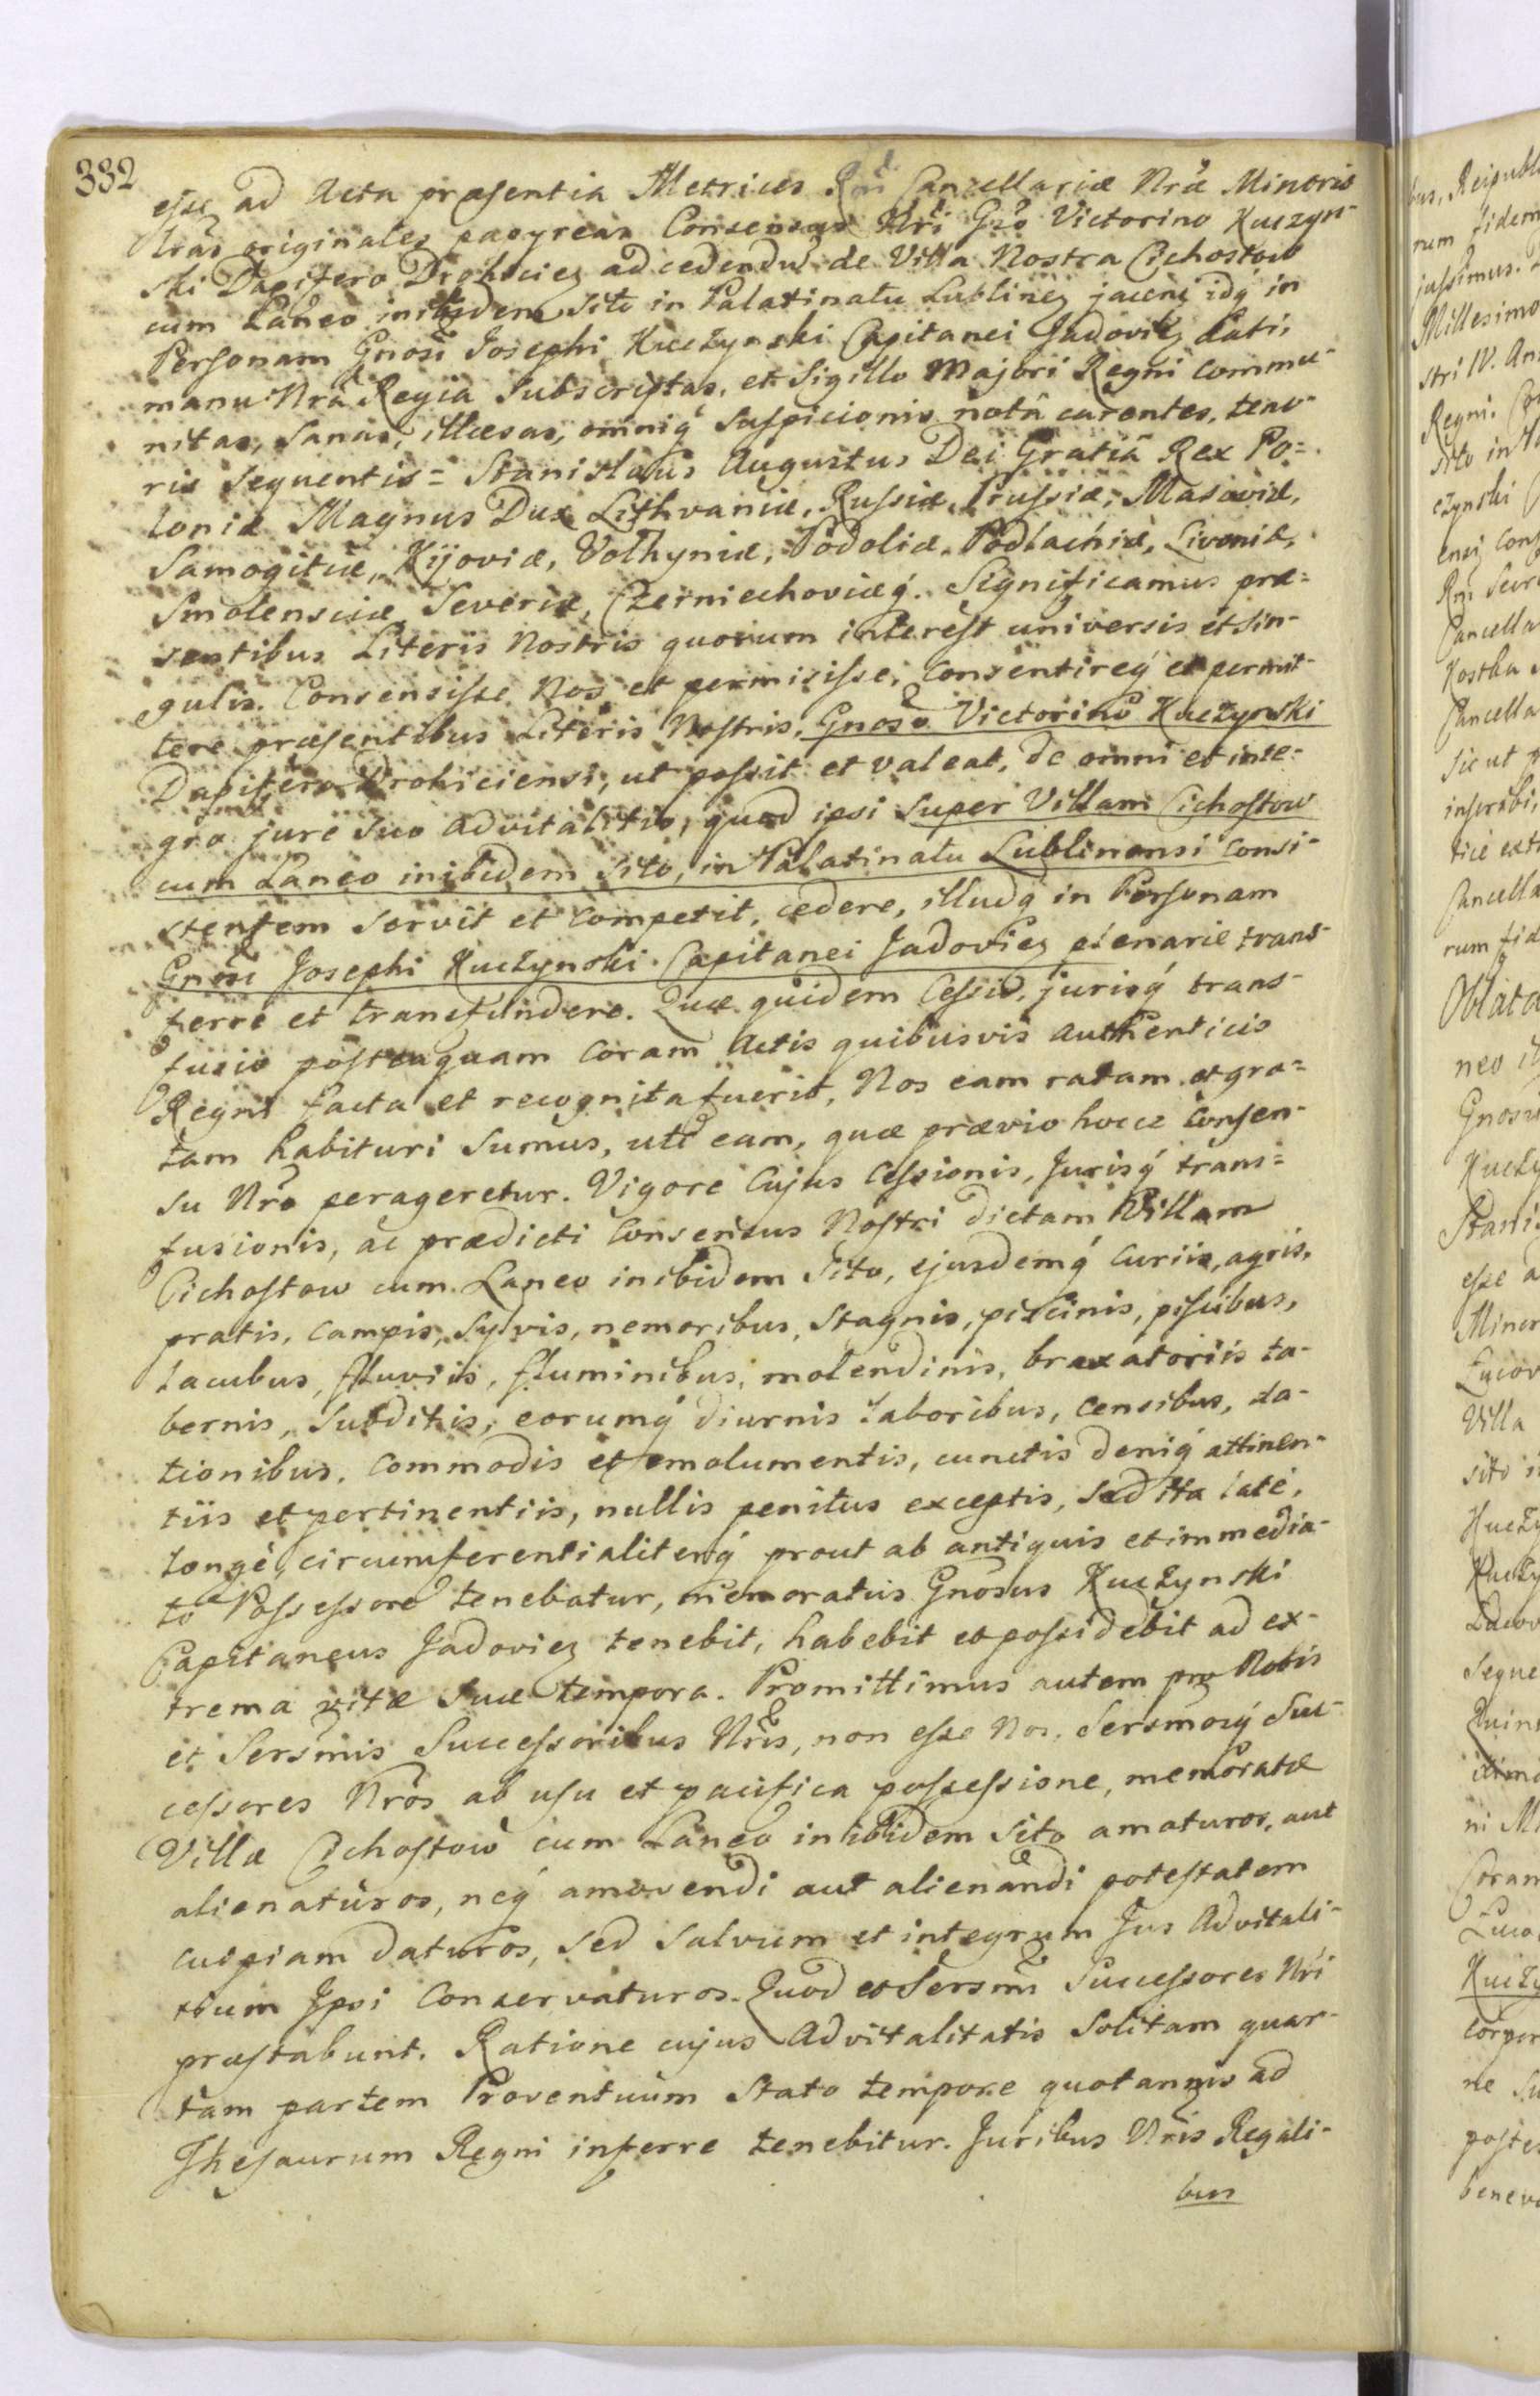 332
esse ad Acta præsentia Metrices Rni Cancellariæ Nræ Minoris
Lrãs originales papyreas Consensus Nri Gso Victorino Kuczyn-
ski Dapifero Drohiciez ad cedendũ de Villa Nostra Cichostow
cum Laneo inibidem sito in Palatinatu Lublinez jacenẽ idq́ in
Personam Gnosi Josephi Kuczynski Capitanei Jadoviez dati,
manu Nrã Regia Subscriptas, et Sigillo Majori Regni commu-
nitas, Sanas, illæsas, omniq́ Suspicionis notâ carentes, teno-
ris sequentis = Stanislaus Augustus Dei Gratiâ Rex Po=
loniæ Magnus Dux Lithvaniæ, Russiæ, Prussiæ, Masoviæ,
Samogitiæ, Kijoviæ, Volhyniæ, Podoliæ, Podlachiæ, Livoniæ,
Smolensciæ Severiæ, Czerniechoviæq́. Significamus præ=
sentibus Literis Nostris quorum interest universis et sin-
gulis. Consensisse Nos et permisisse, Consentireq́ et permit-
tere præsentibus Literis Nostris, Gnoso Victorino Kuczynski
Dapifero Drohiciensi, ut possit et valeat, de omni et inte-
gro jure Suo Advitalitio, quod ipsi Super Villam Cichostow
cum Laneo inibidem sito, in Palatinatu Lublinensi consi-
stentem servit et competit, cedere, illudq́ in Personam
Gnosi Josephi Kuczynski Capitanei Jadoviez plenarie trans-
ferre et transfundere. Quæ quidem Cessio, jurisq́ trans-
fusio posteaquam coram Actis quibusvis authenticis
Regni facta et recognita fuerit, Nos eam ratam et gra=
tam habituri Sumus, uti eam, quæ prævio hocce Consen-
su Nro perageretur. Vigore Cujus Cessionis, Jurisq́ trans=
fusionis, ac prædicti Consensus Nostri dictam Villam
Cichostow cum Laneo inibidem Sito, ejusdemq́ Curiis, agris,
pratis, campis, Sylvis, nemoribus, Stagnis, piscinis, piscibus,
lacubus, fluviis, fluminibus, molendinis, braxatoriis ta-
bernis, Subditis, eorumq́ diurnis laboribus, Censibus, da-
tionibus, Commodis et emolumentis, cunctis deniq́ attinen-
tiis et pertinentiis, nullis penitus exceptis, sed ita latè,
longè, circumferentialiterq́ prout ab antiquis et immedia-
to Possessore tenebatur, memoratus Gnosus Kuczynski
Capitaneus Jadoviez tenebit, habebit et possidebit ad ex-
trema vitæ Suæ tempora. Promittimus autem pro Nobis
et Sersmis Successoribus Nris, non esse Nos, Sersmosq́ Suc-
cessores Nros ab usu et pacifica possessione, memoratæ
Villæ Cichostow cum Laneo inibidem Sito amoturos, aut
alienaturos, neq́ amovendi aut alienandi potestatem
cuipiam daturos, Sed Salvum et integrum Jus Advitali-
tium Ipsi Conservaturos. Quod et Sersmi Successores Nri
præstabunt. Ratione cujus Advitalitatis Solitam quar-
tam partem Proventuum Stato tempore quotannis ad
Thesaurum Regni inferre tenebitur. Juribus Nris Regali-
bus